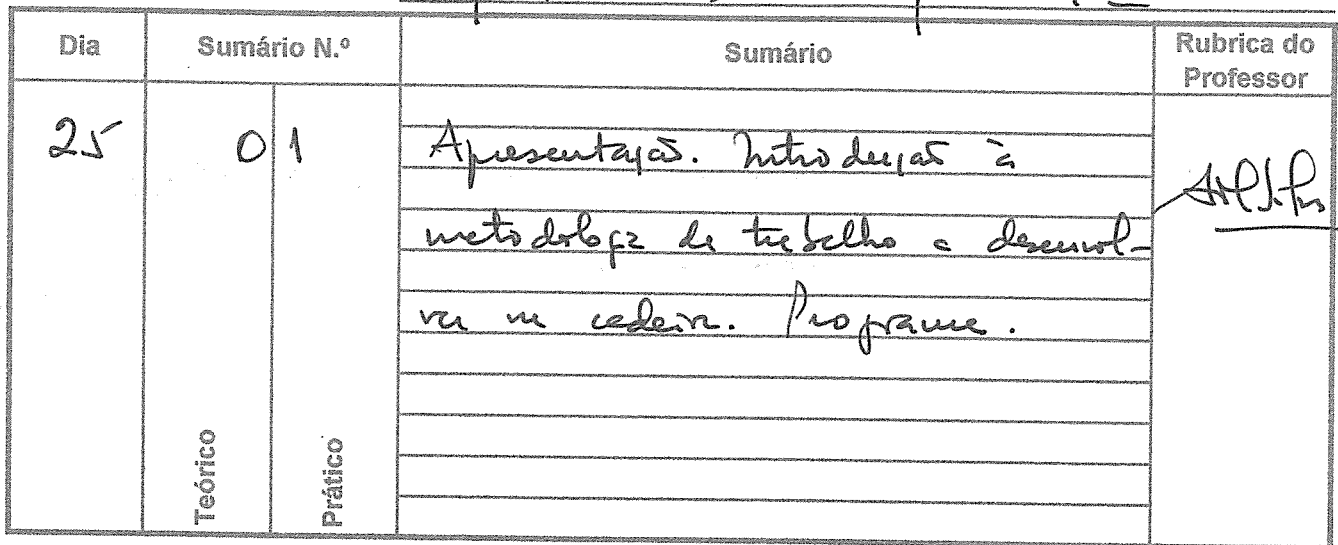 Dia Sumário N.º Sumário Rubrica do Professor
25 01 Apresentação. Introdução à
metodologia de trabalho a desenvol-
ver na cadeira. Programa.
Teórico Prático